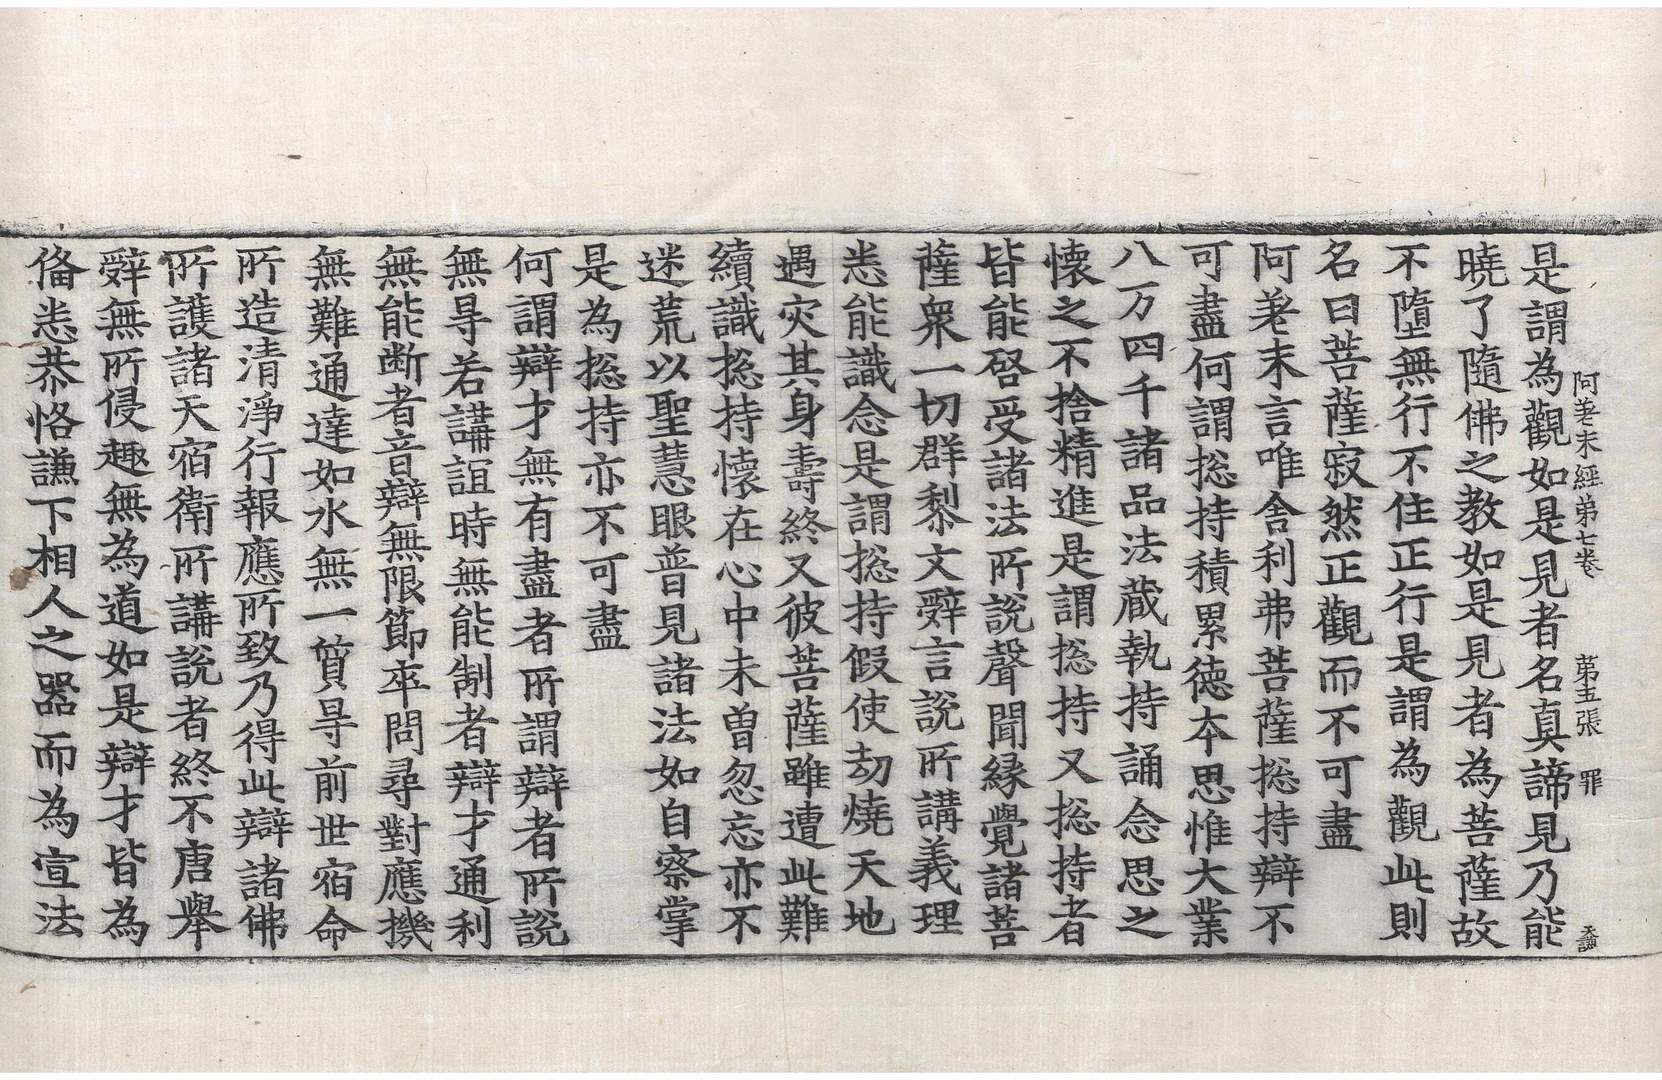 阿差末經第七卷　第五張　罪
是謂為觀如是見者名真諦見乃能
曉了隨佛之教如是見者為菩薩故
不墮無行不住正行是謂為觀此則
名曰菩薩寂然正觀而不可盡
阿差末言唯舍利弗菩薩捴持辯不
可盡何謂捴持積累德本思惟大業
八万四千諸品法藏執持誦念思之
懷之不捨精進是謂捴持又捴持者
皆能啓受諸法所說聲聞緣覺諸菩
薩衆一切群黎文辭言說所講義理
悉能識念是謂捴持假使劫燒天地
遇灾其身壽終又彼菩薩雖遭此難
續識捴持懷在心中未曾忽忘亦不
迷荒以聖慧眼普見諸法如自察掌
是為捴持亦不可盡
何謂辯才無有盡者所謂辯者所說
無㝵若講誼時無能制者辯才通利
無能斷者音辯無限節卒問尋對應機
無難通達如水無一質㝵前世宿命
所造清淨行報應所致乃得此辯諸佛
所護諸天宿衛所講說者終不唐舉
辭無所侵趣無為道如是辯才皆為
俻悉恭恪謙下相人之器而為宣法